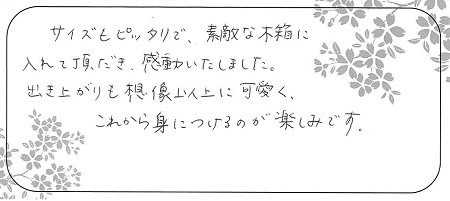 サイズもピッタリで、素敵な木箱に
入れて頂だき、感動いたしました。
出き上がりも想像以上に可愛く、
これから身につけるのが楽しみです。